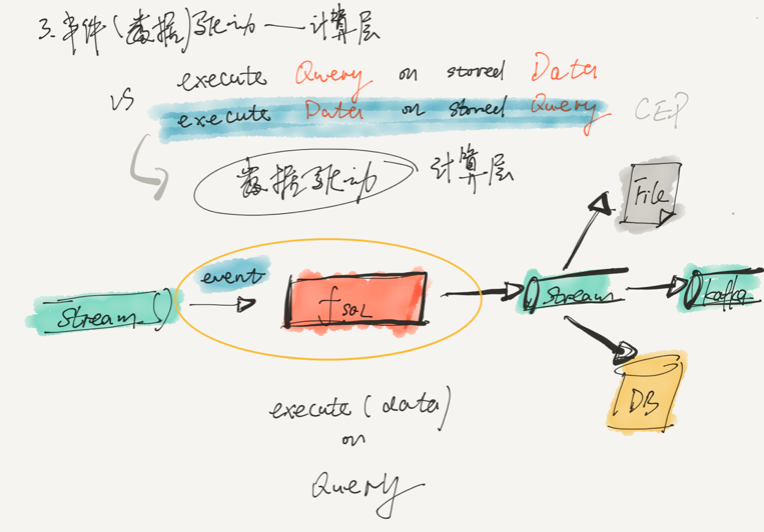 3. 事件(数据)驱动——计算层
execute Query on stored Data
vs execute Data on stored Query CEP
数据驱动 计算层
File
event
Stream
fSQL
Stream
kafka
DB
execute (data)
on
Query